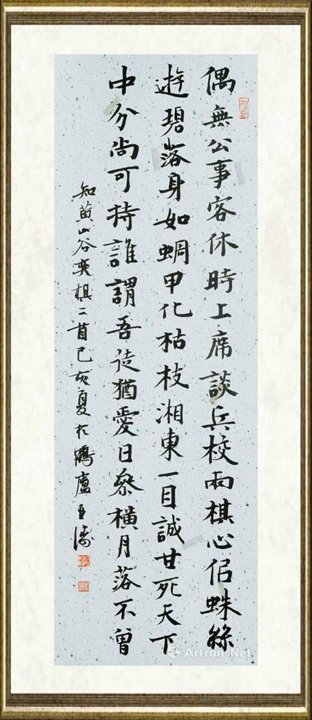 偶無公事客休時上席談兵校兩棋心佀蛛絲
遊碧落身如蜩甲化枯枝湘東一目誠甘死天下
中分尚可持誰謂吾徒猶愛日參橫月落不曾
知黄山谷奕棋二首己亥夏於廬
Artron.Net